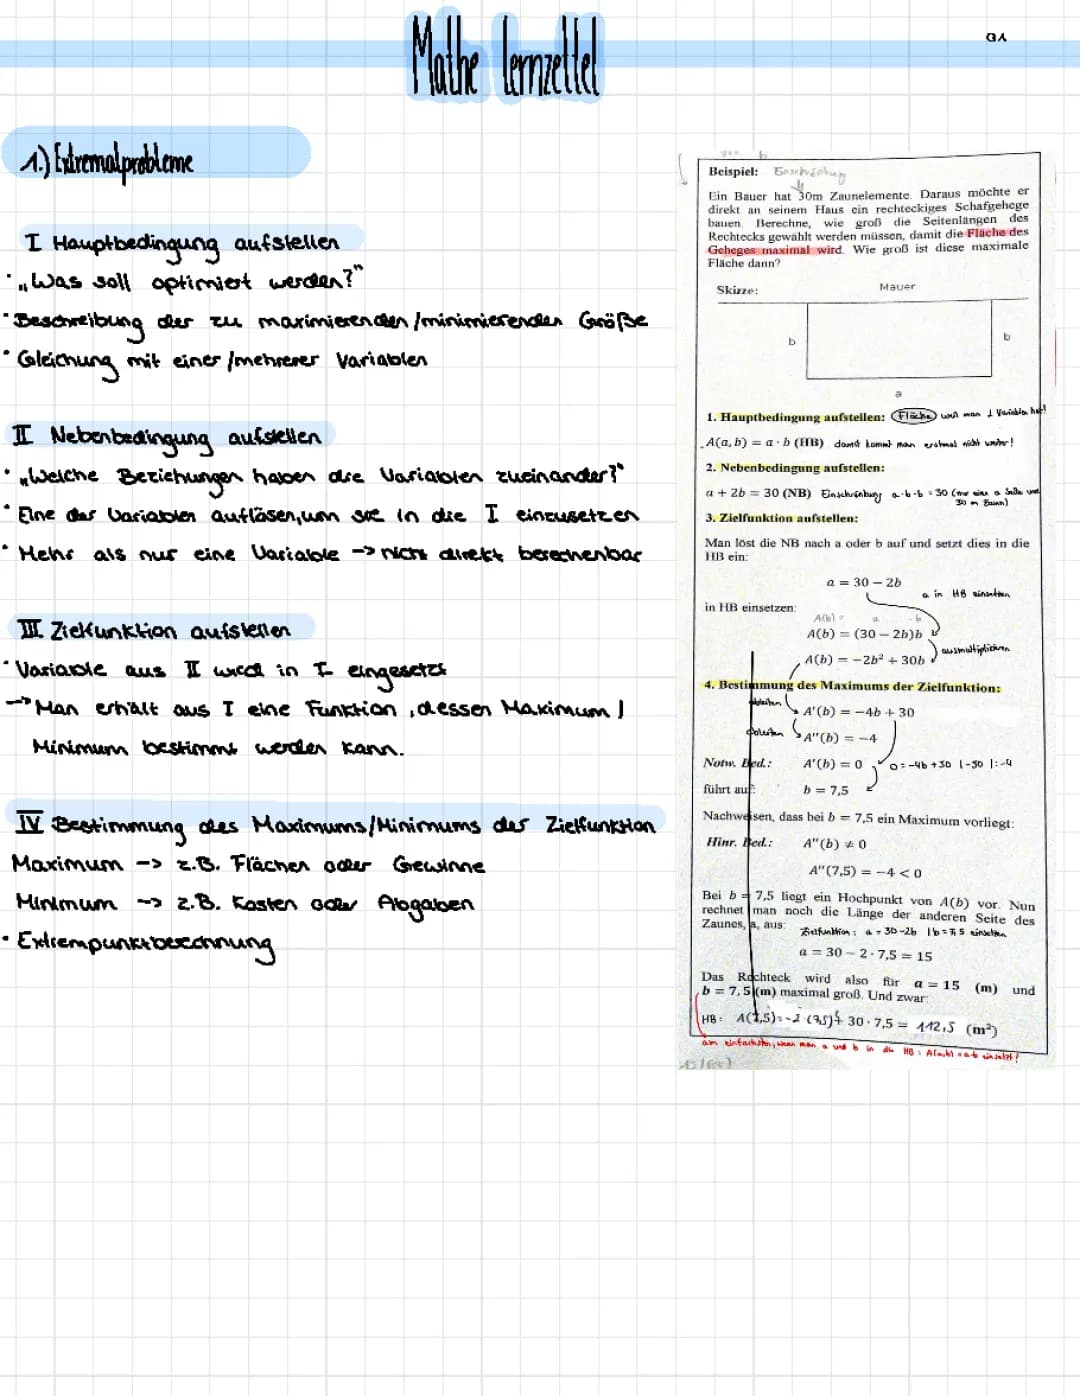 Mathe lernzettel
Q1
1.) Extremalprobleme
I Hauptbedingung aufstellen
· „Was soll optimiert werden?"
· Beschreibung der zu maximierenden/minimierenden Größe
· Gleichung mit einer/mehrerer Variablen
II Nebenbedingung aufstellen
· „Welche Beziehungen haben die Variablen zueinander?"
· Eine der Variablen auflösen, um sie in die I einzusetzen
· Mehr als nur eine Variable -> nicht direkt berechenbar
III Zielfunktion aufstellen
· Variable aus II wird in I eingesetzt
-> Man erhält aus I eine Funktion, dessen Maximum /
Minimum bestimmt werden kann.
IV Bestimmung des Maximums/Minimums der Zielfunktion
Maximum -> z.B. Flächen oder Gewinne
Minimum -> z.B. Kosten oder Abgaben
· Extrempunktberechnung
Beispiel: Einschränkung
Ein Bauer hat 30m Zaunelemente. Daraus möchte er
direkt an seinem Haus ein rechteckiges Schafgehege
bauen. Berechne, wie groß die Seitenlängen des
Rechtecks gewählt werden müssen, damit die Fläche des
Geheges maximal wird. Wie groß ist diese maximale
Fläche dann?
Skizze:
Mauer
b
b
a
1. Hauptbedingung aufstellen: Fläche weil man 2 Variablen hat!
A(a, b) = a · b (HB) damit kommt man erstmal nicht weiter!
2. Nebenbedingung aufstellen:
a + 2b = 30 (NB) Einschränkung a·b·b = 30 (nur eine a Seite und
30 m Zaun)
3. Zielfunktion aufstellen:
Man löst die NB nach a oder b auf und setzt dies in die
HB ein:
a = 30 − 2b
a in HB einsetzen
in HB einsetzen:
A(b) = a · b
A(b) = (30 − 2b)b
ausmultiplizieren
A(b) = −2b² + 30b
4. Bestimmung des Maximums der Zielfunktion:
ableiten
A'(b) = −4b + 30
ableiten
A''(b) = −4
Notw. Bed.: A'(b) = 0 0 = -4b +30 |-30 |:-4
führt auf: b = 7,5
Nachweisen, dass bei b = 7,5 ein Maximum vorliegt:
Hinr. Bed.: A''(b) ≠ 0
A''(7,5) = −4 < 0
Bei b = 7,5 liegt ein Hochpunkt von A(b) vor. Nun
rechnet man noch die Länge der anderen Seite des
Zaunes, a, aus: Zielfunktion: a = 30-2b | b = 7,5 einsetzen
a = 30 − 2 · 7,5 = 15
Das Rechteck wird also für a = 15 (m) und
b = 7,5 (m) maximal groß. Und zwar:
HB: A(7,5) = -2·(7,5)² + 30 · 7,5 = 112,5 (m²)
am einfachsten, wenn man a und b in die HB: A(a,b) = a·b einsetzt!